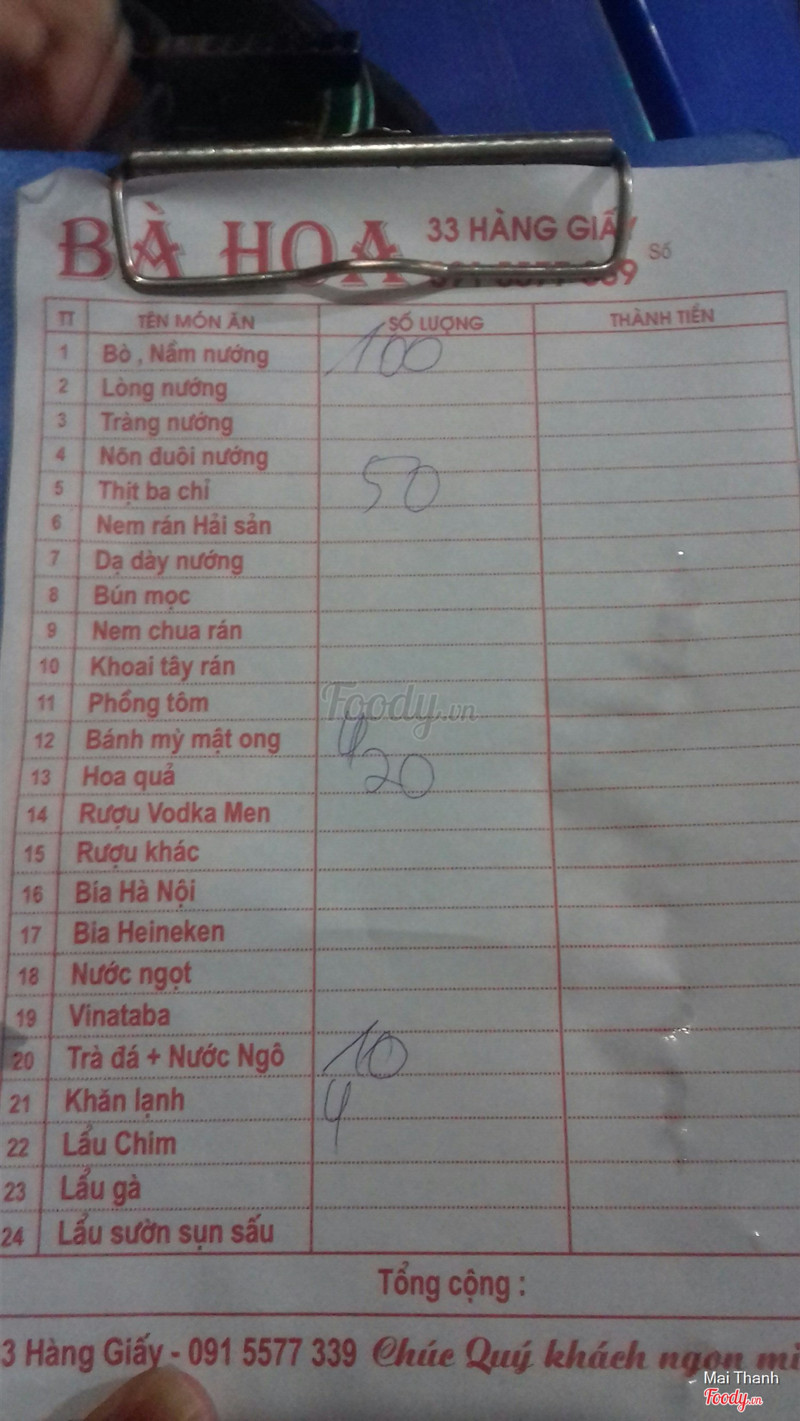 BÀ HOA 33 HÀNG GIẤY
091 5577 339 Số
TT TÊN MÓN ĂN SỐ LƯỢNG THÀNH TIỀN
1 Bò , Nầm nướng 100
2 Lòng nướng
3 Tràng nướng
4 Nõn đuôi nướng
5 Thịt ba chỉ 50
6 Nem rán Hải sản
7 Dạ dày nướng
8 Bún mọc
9 Nem chua rán
10 Khoai tây rán
11 Phồng tôm
Foody.vn
12 Bánh mỳ mật ong 4
13 Hoa quả 20
14 Rượu Vodka Men
15 Rượu khác
16 Bia Hà Nội
17 Bia Heineken
18 Nước ngọt
19 Vinataba
20 Trà đá + Nước Ngô 10
21 Khăn lạnh 4
22 Lẩu Chim
23 Lẩu gà
24 Lẩu sườn sụn sấu
Tổng cộng :
3 Hàng Giấy - 091 5577 339 Chúc Quý khách ngon mi
Mai Thanh
Foody.vn